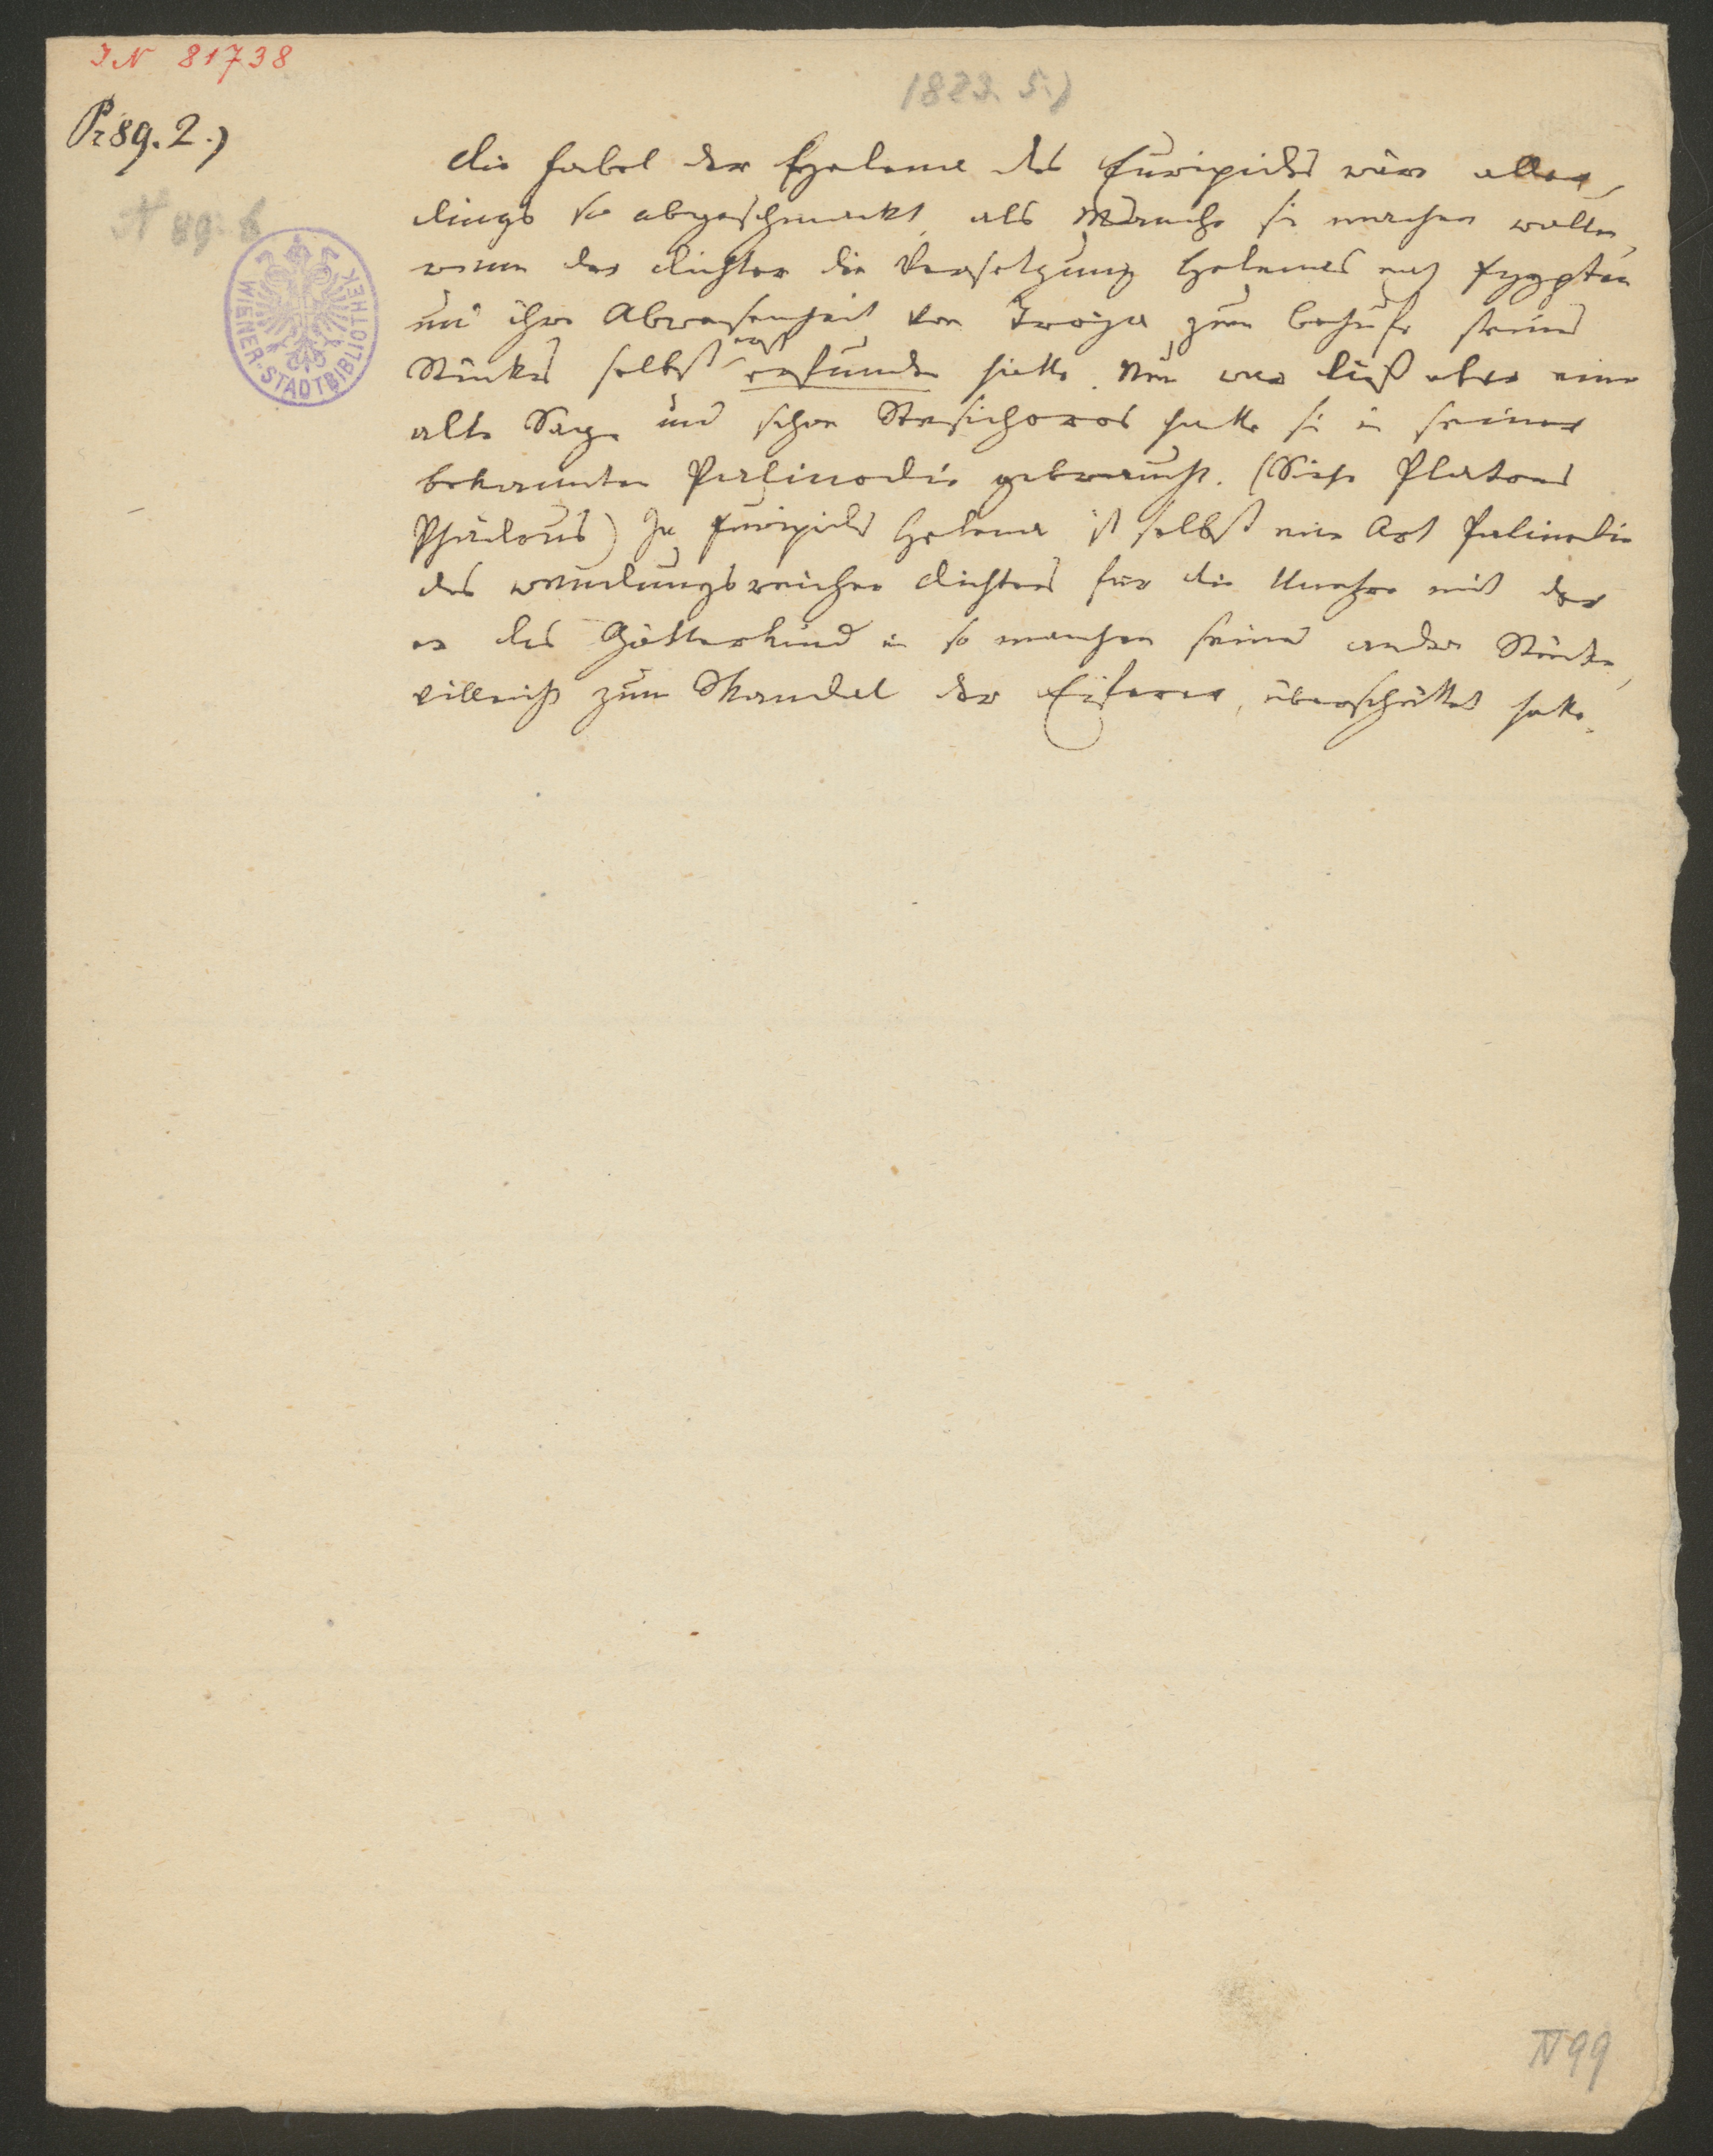 IN 81738
1823. 5.)
Pr 89. 2.)
N 89. b
WIENER-STADTBIBLIOTHEK
Die Fabel der Helena des Euripides wäre aller-
dings so abgeschmackt, als Manche sie machen wollen,
wenn der Dichter die Versetzung Helenens nach Egypten
und ihre Abwesenheit von Troja zum Behufe seines
Stückes selbst erst erfunden hätte. Nun war dieß aber eine
alte Sage und schon Stesichoros hatte sie in seiner
bekannten Palinodie gebraucht. (Siehe Platons
Phädrus) Ja Euripides Helena ist selbst eine Art Palinodie
des wendungsreichen Dichters für die Unehre mit der
er das Götterkind in so manchen seiner andern Stücke,
villeicht zum Skandal der Eiferer, überschüttet hatte.
N 99